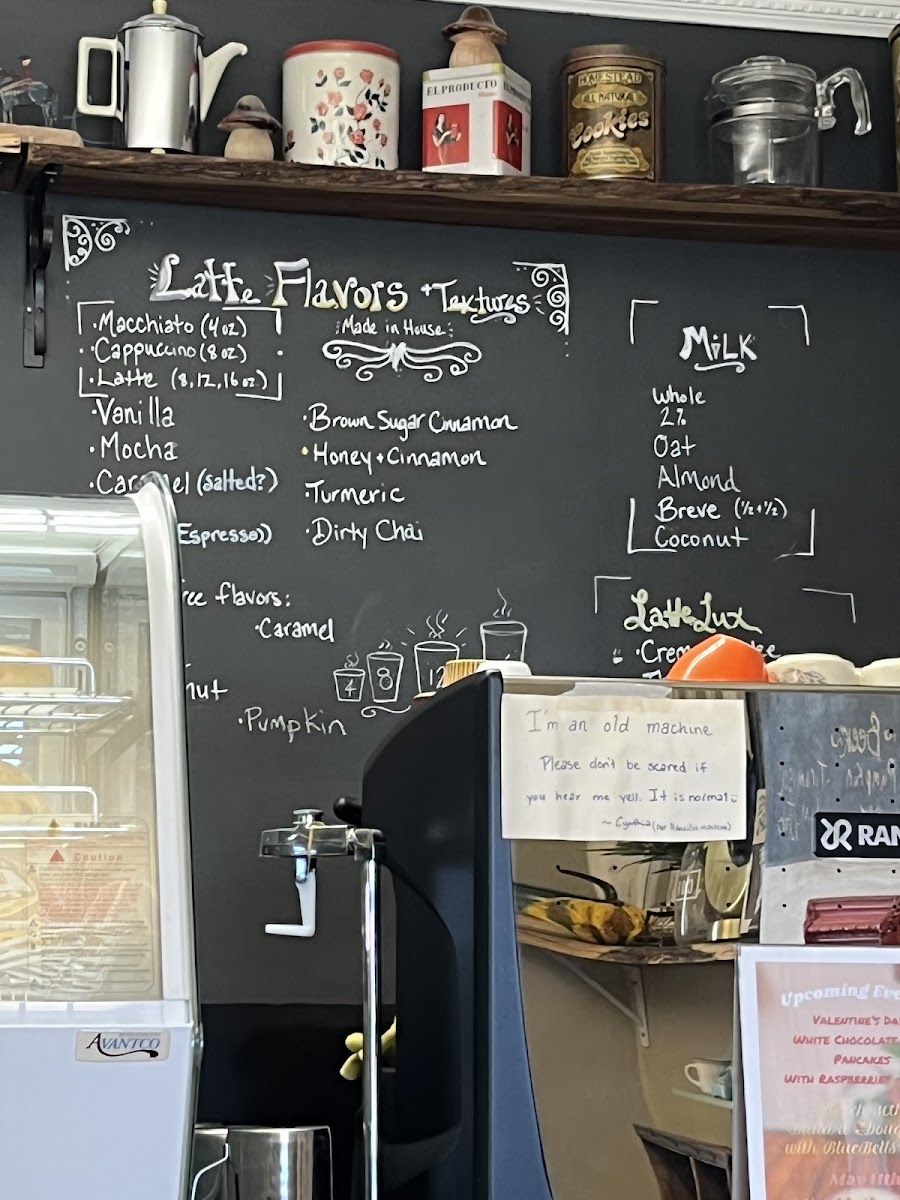 EL PRODUCTO
HOMESTEAD
ALL NATURAL
Cookies
Latte Flavors + Textures
• Macchiato (4 oz)
• Cappuccino (8 oz)
• Latte (8, 12, 16 oz)
• Vanilla
• Mocha
• Caramel (salted?)
Espresso))
flavors:
• Caramel
• Pumpkin
Made in House:
• Brown Sugar Cinnamon
• Honey + Cinnamon
• Turmeric
• Dirty Chai
4
8
12
MiLK
Whole
2%
Oat
Almond
Breve (½+½)
Coconut
Latte Lux
I'm an old machine
Please don't be scared if
you hear me yell. It is normal
~ Cynthia (our Rancilio machine)
RAN
Caution
AVANTCO
Upcoming Eve
VALENTINE'S DA
WHITE CHOCOLATE
PANCAKES
WITH RASPBERRIES
with BlueBells